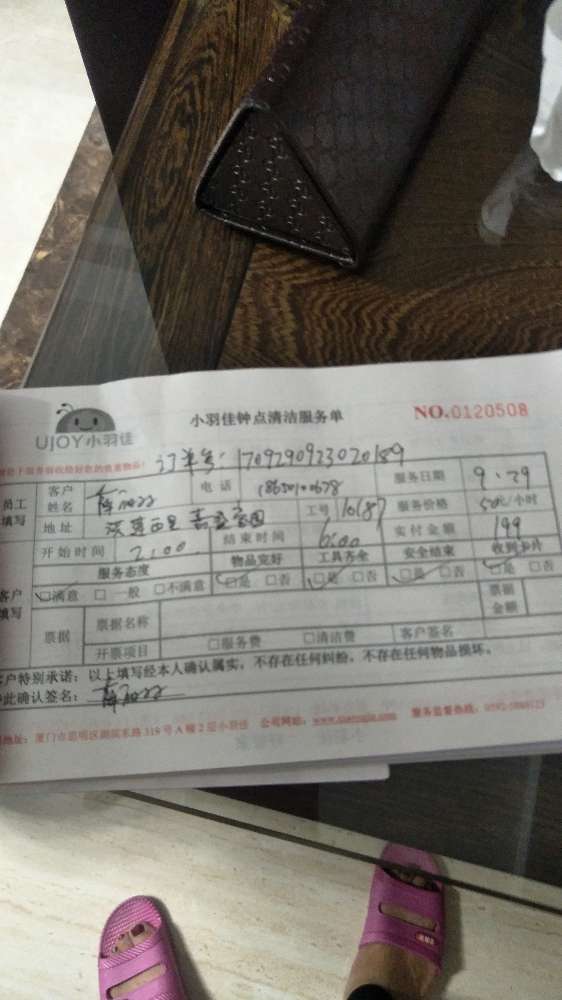 UJOY小羽佳
小羽佳钟点清洁服务单
NO.0120508
订单号:1709290923020189
员工填写
客户姓名
电话
服务日期 9.29
地址
工号 16187
服务价格 50元/小时
开始时间 2:00
结束时间 6:00
实付金额 199
服务态度
物品完好
工具齐全
安全结束
收到卡片
客户填写
满意 □一般 □不满意
是 □否
是 □否
是 □否
是 □否
票据
票据名称
票据金额
开票项目
□服务费 □清洁费
客户签名
客户特别承诺:以上填写经本人确认属实,不存在任何纠纷,不存在任何物品损坏。
此确认签名:
地址:厦门市思明区湖滨东路319号A幢2层小羽佳 公司网站: 服务监督热线: